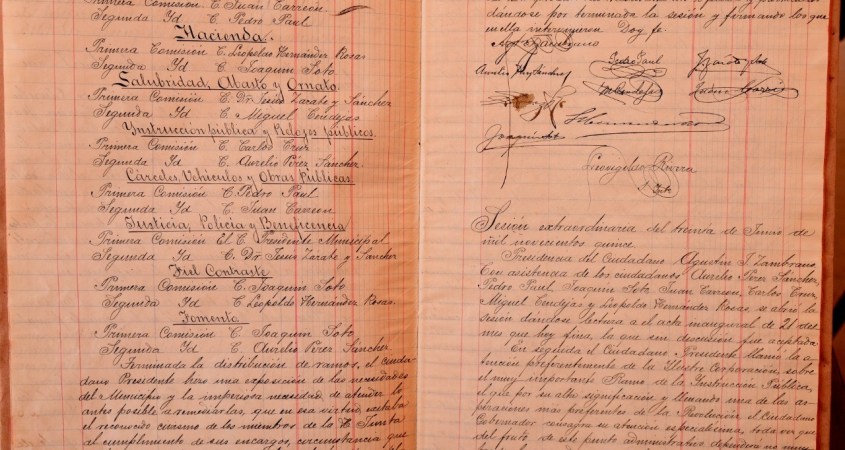 Primera Comisión C. Juan Carreón
Segunda Id C. Pedro Paul
Hacienda
Primera Comisión C. Leopoldo Hernández Rosas
Segunda Id C. Joaquin Soto
Salubridad, Abasto y Ornato
Primera Comisión C. Dr. Jesús Zarate y Sánchez
Segunda Id C. Miguel Cendejas
Instrucción pública y Relojes públicos.
Primera Comisión C. Carlos Cruz
Segunda Id C. Aurelio Pérez Sánchez
Cárceles, Vehículos y Obras Públicas
Primera Comisión C. Pedro Paul
Segunda Id C. Juan Carreon
Justicia, Policía y Beneficencia
Primera Comisión El C. Presidente Municipal
Segunda Id C. Dr. Jesús Zarate y Sánchez
Fiel Contraste
Primera Comisión C. Joaquin Soto
Segunda Id C. Leopoldo Hernández Rosas
Fomento
Primera Comisión C. Joaquin Soto
Segunda Id C. Aurelio Pérez Sánchez
Terminada la distribución de ramos, el ciuda-
dano Presidente hizo una exposición de las necesidades
del Municipio y la imperiosa necesidad, de atender lo
antes posible a remediarlas, que en esa virtud, exitaba
el reconocido civismo de los miembros de la H. Junta
al cumplimiento de sus encargos, circunstancia que
dandose por terminada la sesión y firmando los que
en ella intervinieron Doy fe.
Pedro Paul
M. Cendejas
Joaquin Soto
Leovigildo Rivera
Srio
Sesión extraordinaria del treinta de Junio de
mil novecientos quince
Presidencia del Ciudadano Agustin J. Zambrano.
Con asistencia de los ciudadanos Aurelio Pérez Sánchez,
Pedro Paul, Joaquin Soto, Juan Carreon, Carlos Cruz,
Miguel Cendejas y Leopoldo Hernández Rosas se abrió la
sesión dándose lectura a el acta inaugural de 21 del
mes que hoy fina, la que sin discusión fue aceptada.
En seguida el Ciudadano Presidente llamó la a-
tención preferentemente de la Ilustre Corporación, sobre
el muy importante Ramo de la Instrucción Pública,
el que por su alta significación y llenando una de las as-
piraciones mas preferentes de la Revolución el Ciudadano
Gobernador su atención especialisima, toda vez que
del fruto de este punto administrativo dependerá no muy